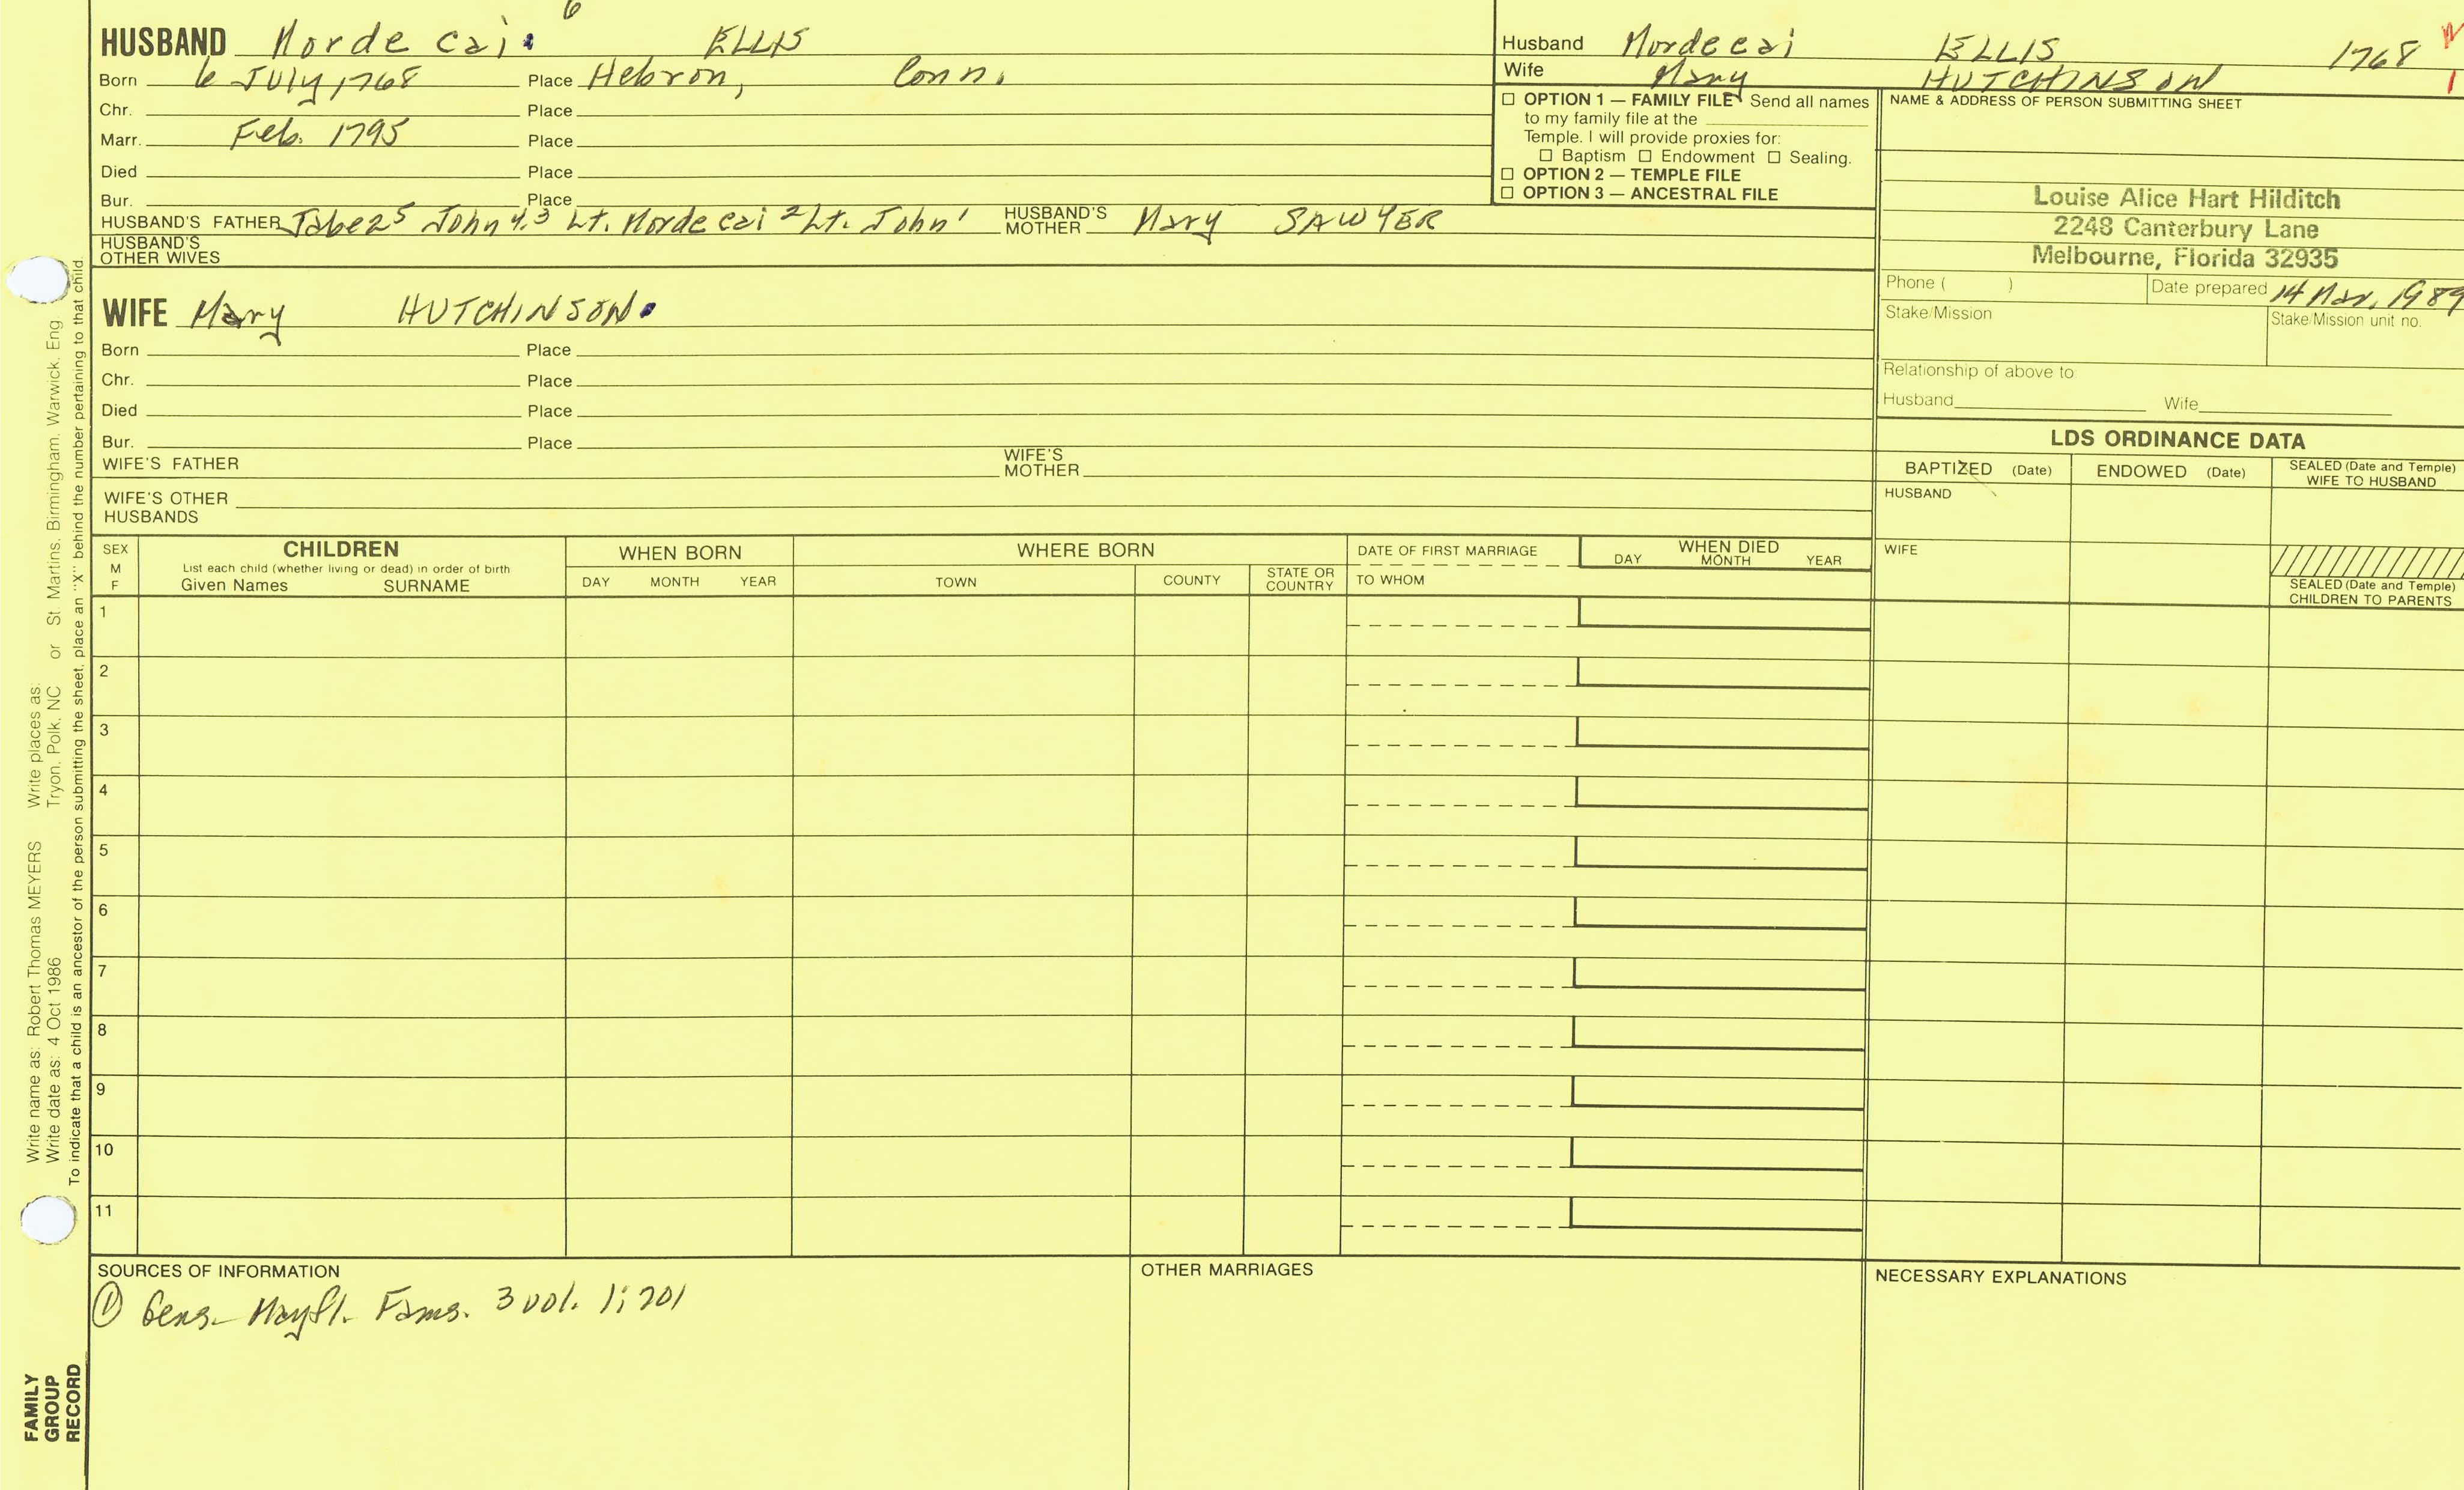 6
HUSBAND Mordecai ELLIS
Born 6 JULY, 1768 Place Hebron, Conn.
Chr. Place
Marr. Feb. 1795 Place
Died Place
Bur. Place
HUSBAND'S FATHER Jabez 5 John 4,3 Lt. Mordecai 2 Lt. John 1 HUSBAND'S MOTHER Mary SAWYER
HUSBAND'S OTHER WIVES
WIFE Mary HUTCHINSON.
Born Place
Chr. Place
Died Place
Bur. Place
WIFE'S FATHER WIFE'S MOTHER
WIFE'S OTHER HUSBANDS
Husband Mordecai ELLIS 1768
Wife Mary HUTCHINSON
☐ OPTION 1 — FAMILY FILE Send all names
to my family file at the
Temple. I will provide proxies for:
☐ Baptism ☐ Endowment ☐ Sealing.
☐ OPTION 2 — TEMPLE FILE
☐ OPTION 3 — ANCESTRAL FILE
NAME & ADDRESS OF PERSON SUBMITTING SHEET
Louise Alice Hart Hilditch
2248 Canterbury Lane
Melbourne, Florida 32935
Phone ( ) Date prepared 14 Mar, 1989
Stake/Mission Stake/Mission unit no.
Relationship of above to:
Husband Wife
LDS ORDINANCE DATA
BAPTIZED (Date) ENDOWED (Date) SEALED (Date and Temple) WIFE TO HUSBAND
HUSBAND
WIFE
SEALED (Date and Temple)
CHILDREN TO PARENTS
SEX M F CHILDREN WHEN BORN WHERE BORN DATE OF FIRST MARRIAGE WHEN DIED
List each child (whether living or dead) in order of birth DAY MONTH YEAR
Given Names SURNAME DAY MONTH YEAR TOWN COUNTY STATE OR COUNTRY TO WHOM
1
2
3
4
5
6
7
8
9
10
11
SOURCES OF INFORMATION
① Gens. Mayfl. Fams. 3 vol. 1; 701
OTHER MARRIAGES
NECESSARY EXPLANATIONS
Write name as: Robert Thomas MEYERS Write places as:
Write date as: 4 Oct 1986 Tryon, Polk, NC or St. Martins, Birmingham, Warwick, Eng.
To indicate that a child is an ancestor of the person submitting the sheet, place an "X" behind the number pertaining to that child.
FAMILY
GROUP
RECORD